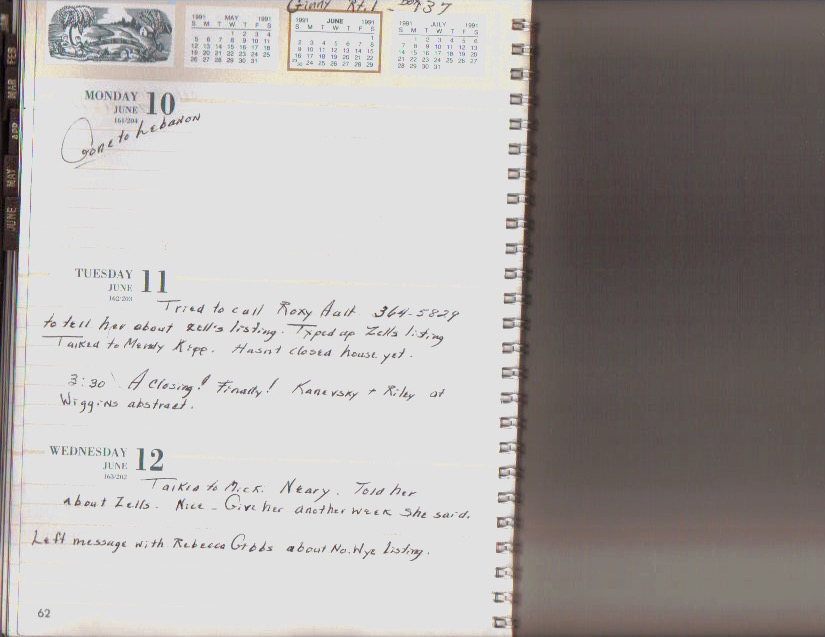 Ginny Rt. 1 - Box 137
1991 MAY 1991
S M T W T F S
1 2 3 4
5 6 7 8 9 10 11
12 13 14 15 16 17 18
19 20 21 22 23 24 25
26 27 28 29 30 31
1991 JUNE 1991
S M T W T F S
1
2 3 4 5 6 7 8
9 10 11 12 13 14 15
16 17 18 19 20 21 22
23/30 24 25 26 27 28 29
1991 JULY 1991
S M T W T F S
1 2 3 4 5 6
7 8 9 10 11 12 13
14 15 16 17 18 19 20
21 22 23 24 25 26 27
28 29 30 31
FEB
MAR
APR
MAY
JUNE
MONDAY 10
JUNE
161/204
Gone to Lebanon
TUESDAY 11
JUNE
162/203
Tried to call Roxy Ault 364-5829
to tell her about Zell's listing. Typed up Zells listing
Talked to Mendy Kipp. Hasnt closed house yet.
3:30 A Closing! Finally! Kanevsky + Riley at
Wiggins abstract.
WEDNESDAY 12
JUNE
163/202
Talked to Mick. Neary. Told her
about Zells. Nice - Give her another week she said.
Left message with Rebecca Gibbs about No. Wye listing.
62